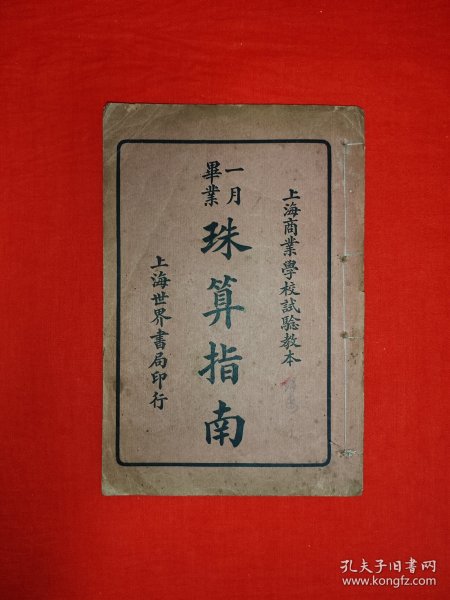 上海商業學校試驗教本
一月
畢業
珠算指南
上海世界書局印行
孔夫子旧书网
www.kongfz.com